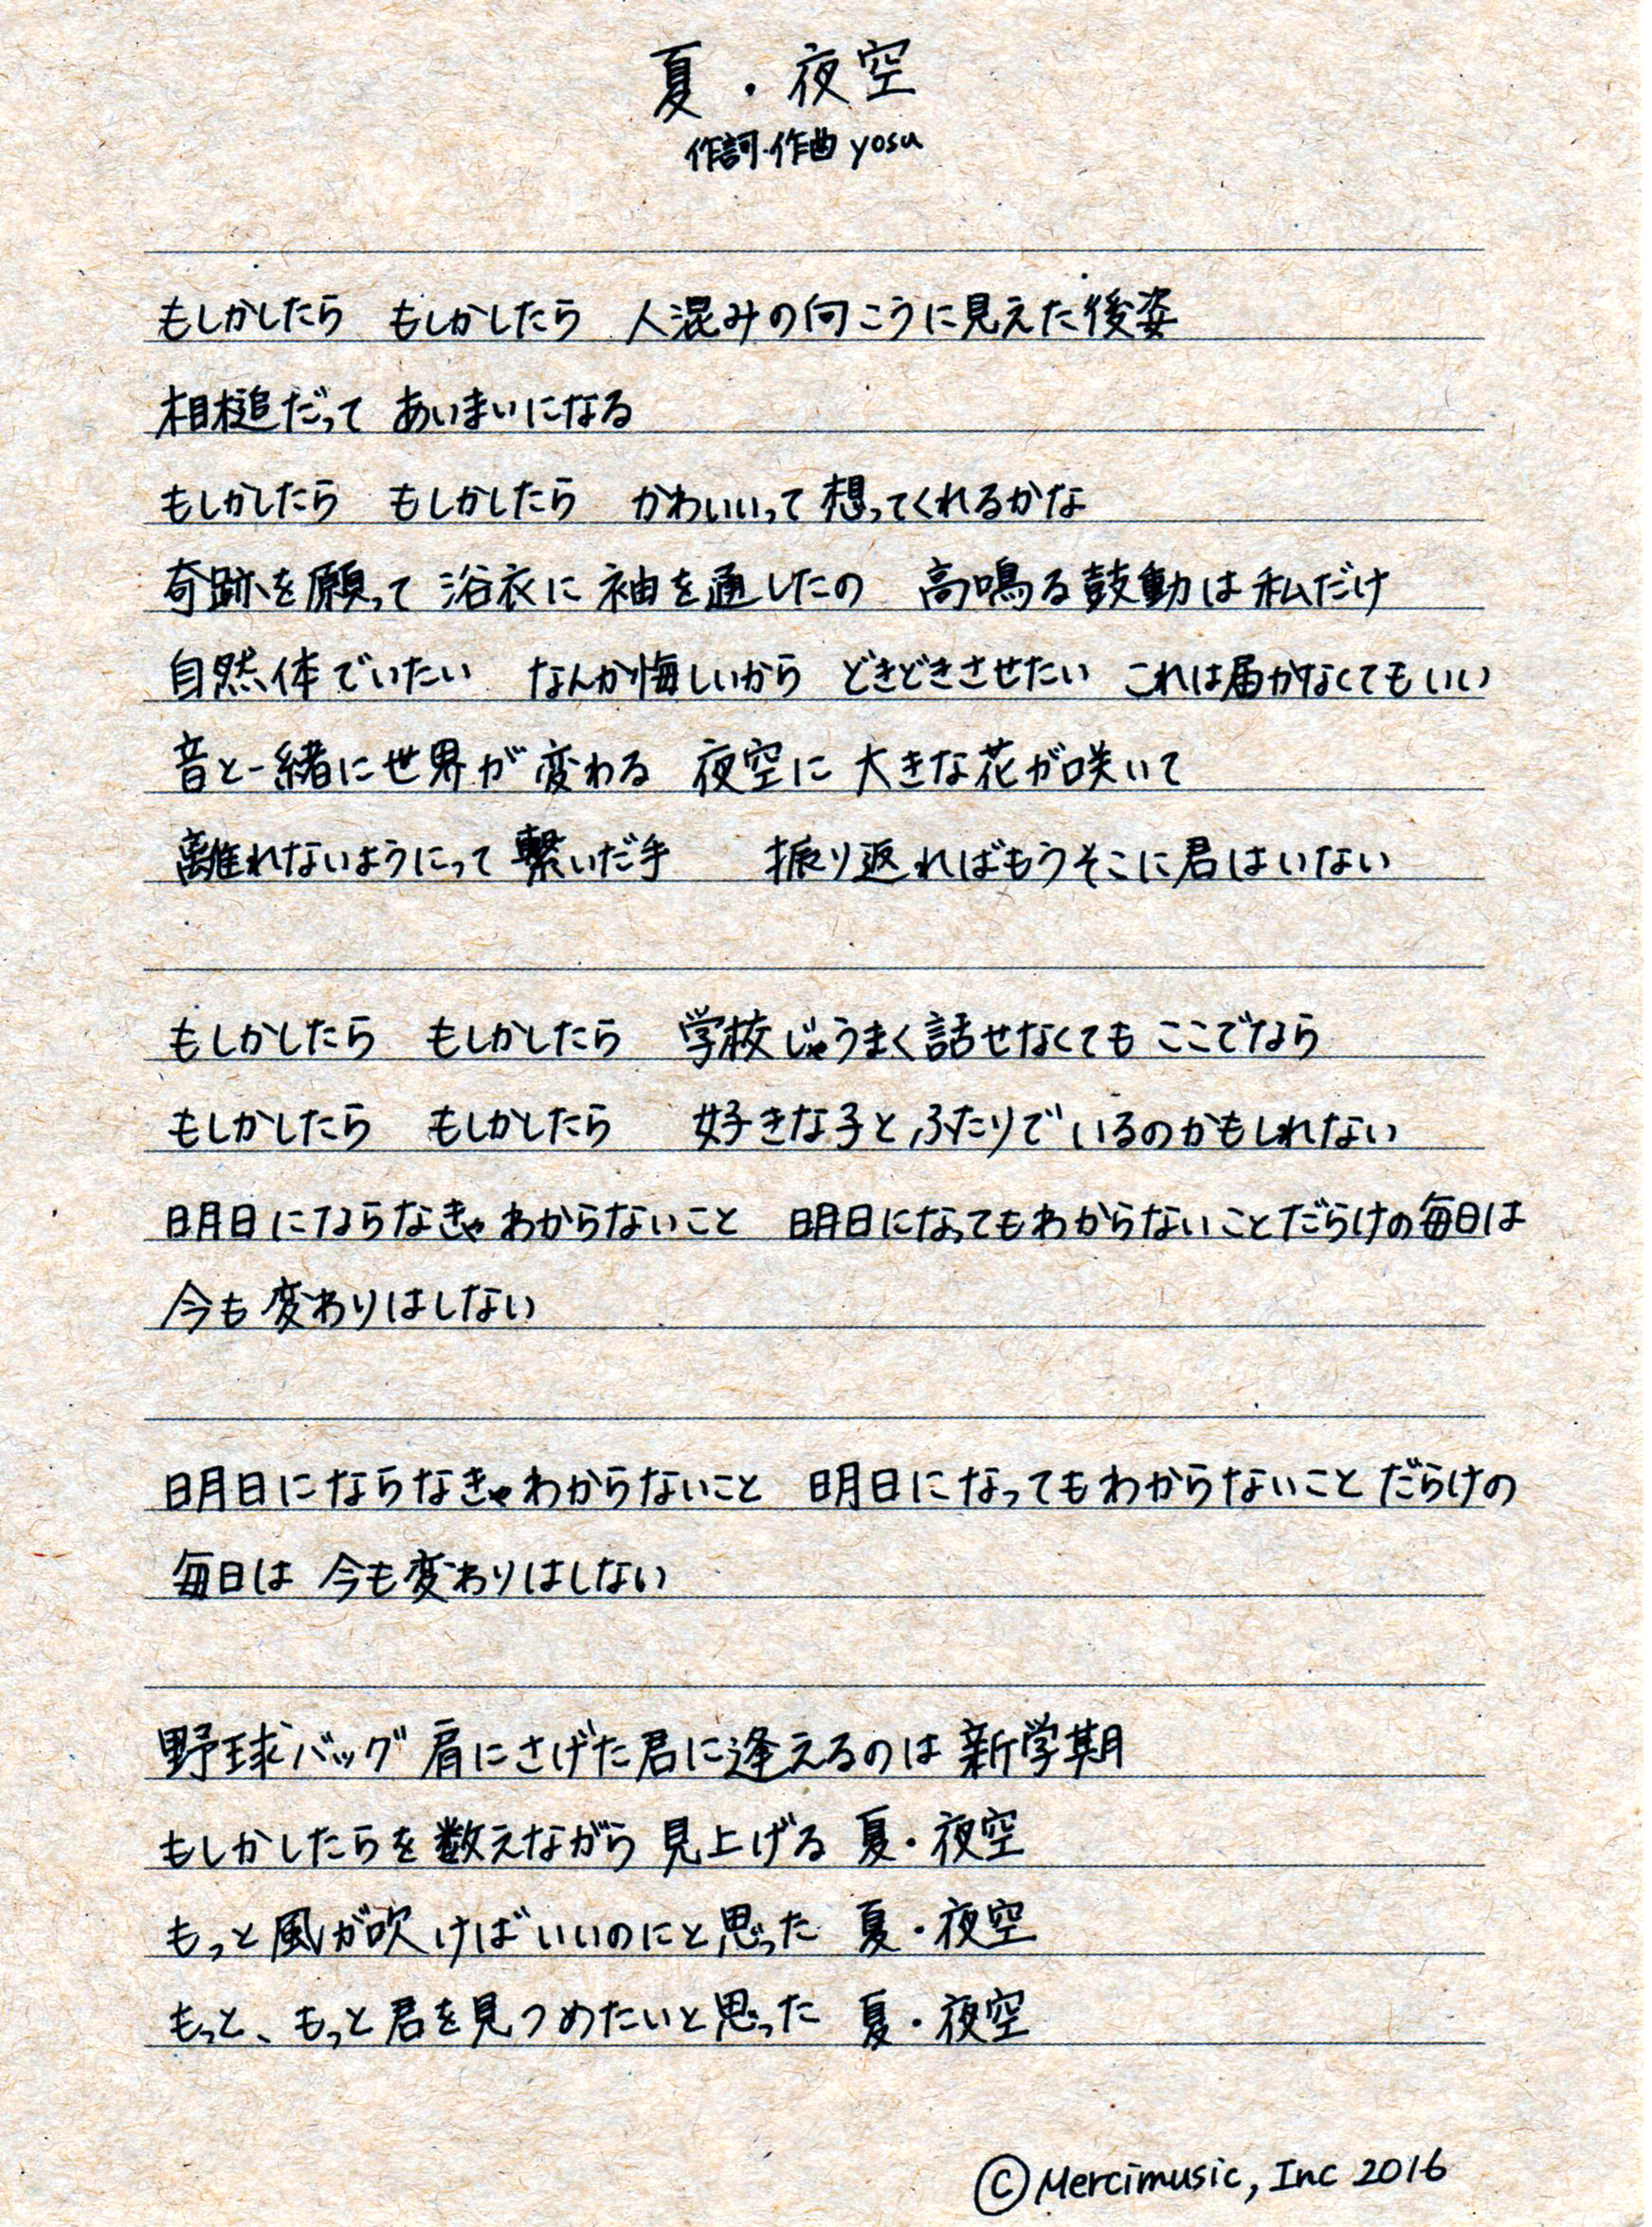 夏・夜空
作詞・作曲 yosu
もしかしたら　もしかしたら　人混みの向こうに見えた後姿
相槌だって　あいまいになる
もしかしたら　もしかしたら　かわいいって想ってくれるかな
奇跡を願って 浴衣に 袖を通したの　高鳴る鼓動は私だけ
自然体でいたい　なんか悔しいから　どきどきさせたい　これは届かなくてもいい
音と一緒に世界が変わる　夜空に 大きな花が咲いて
離れないようにって 繋いだ手　　振り返ればもうそこに君はいない
もしかしたら　もしかしたら　学校じゃうまく話せなくても ここでなら
もしかしたら　もしかしたら　好きな子と ふたりでいるのかもしれない
明日にならなきゃわからないこと　明日になってもわからないことだらけの毎日は
今も変わりはしない
明日にならなきゃわからないこと　明日になってもわからないことだらけの
毎日は 今も変わりはしない
野球バッグ 肩にさげた君に逢えるのは新学期
もしかしたらを数えながら 見上げる 夏・夜空
もっと風が吹けばいいのにと思った 夏・夜空
もっと、もっと君を見つめたいと思った 夏・夜空
©Mercimusic, Inc 2016